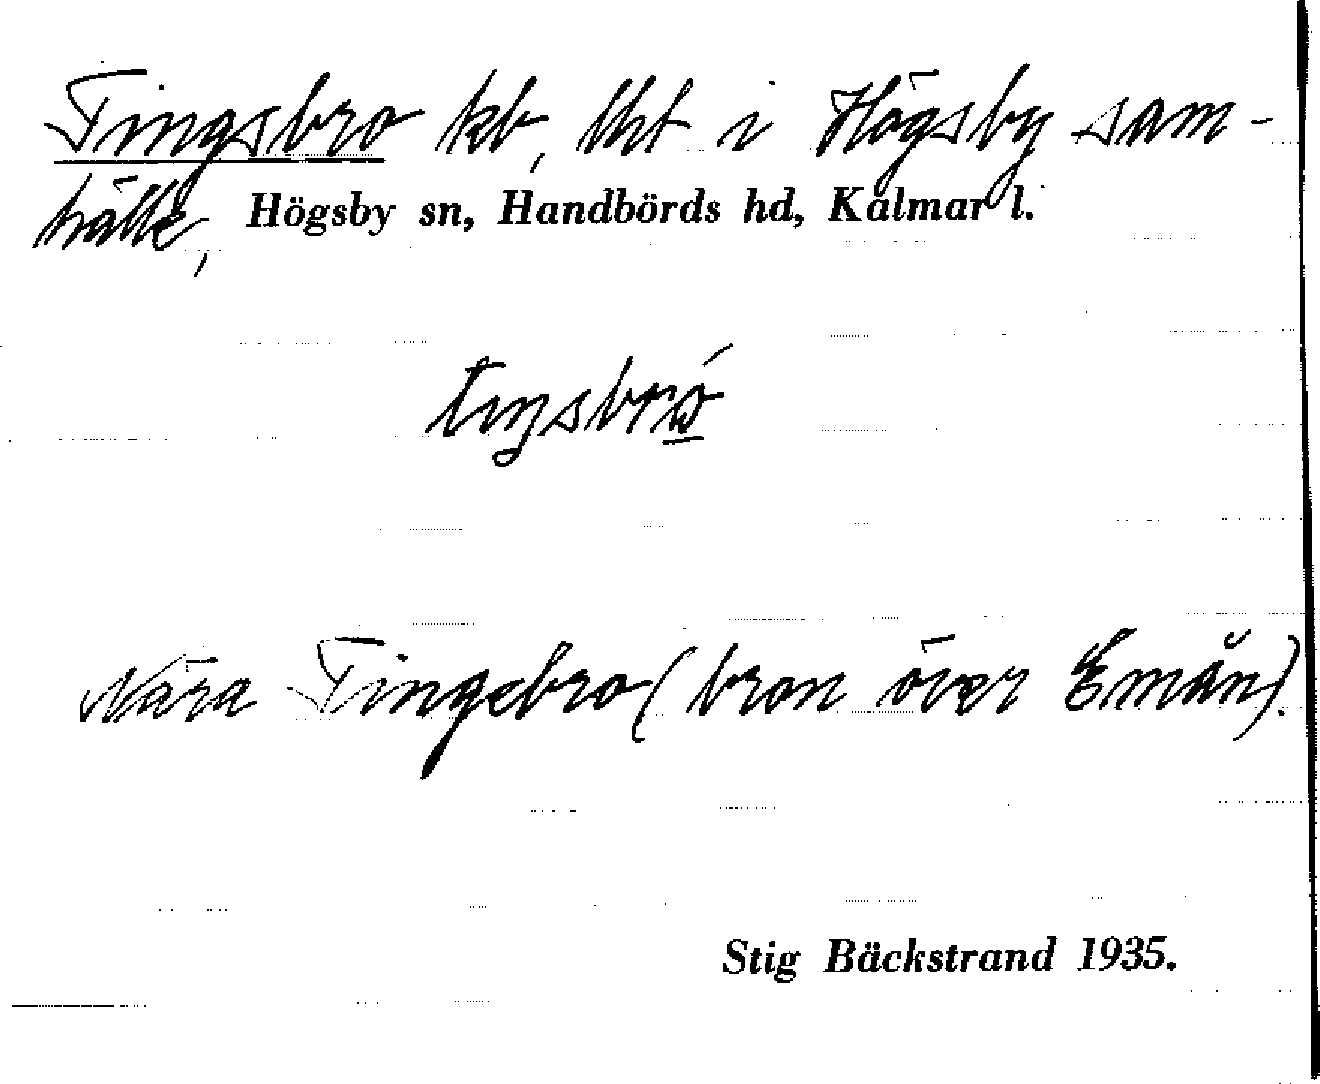 Tingsbro kb, lht i Högsby sam-
hälle, Högsby sn, Handbörds hd, Kalmar l.
tiŋsbrό̲
Nära Tingsbro (bron över Emån).
Stig Bäckstrand 1935.